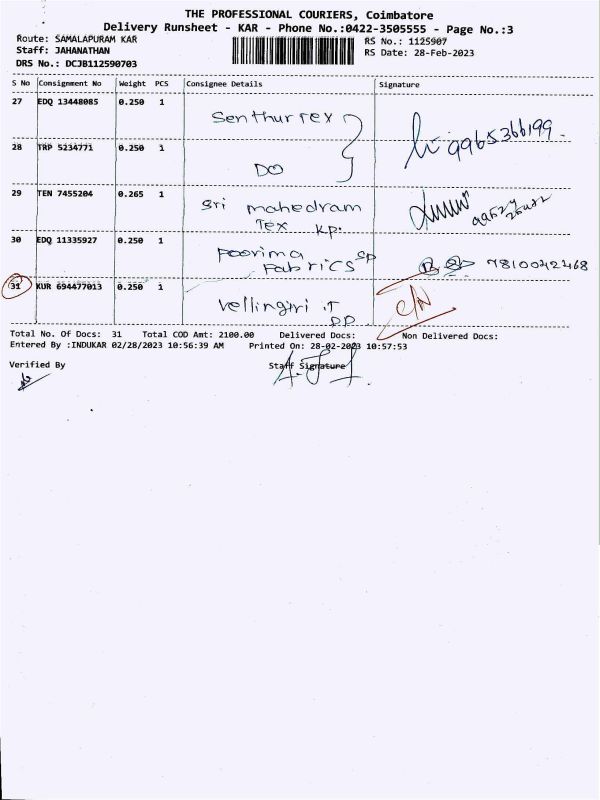 THE PROFESSIONAL COURIERS, Coimbatore
Delivery Runsheet - KAR - Phone No.:0422-3505555 - Page No.:3
Route: SAMALAPURAM KAR
RS No.: 1125907
Staff: JAHANATHAN
RS Date: 28-Feb-2023
DRS No.: DCJB112590703
S No Consignment No Weight PCS Consignee Details Signature
27 EDQ 13448085 0.250 1 Senthur Tex 9965366199
28 TRP 5234771 0.250 1 DO
29 TEN 7455204 0.265 1 Sri mahedram
Tex KP.
30 EDQ 11335927 0.250 1 Poorima SP
Fabrics 7810042468
31 KUR 694477013 0.250 1 Vellingiri .T C/N
PP
Total No. Of Docs: 31 Total COD Amt: 2100.00 Delivered Docs: Non Delivered Docs:
Entered By :INDUKAR 02/28/2023 10:56:39 AM Printed On: 28-02-2023 10:57:53
Verified By Staff Signature